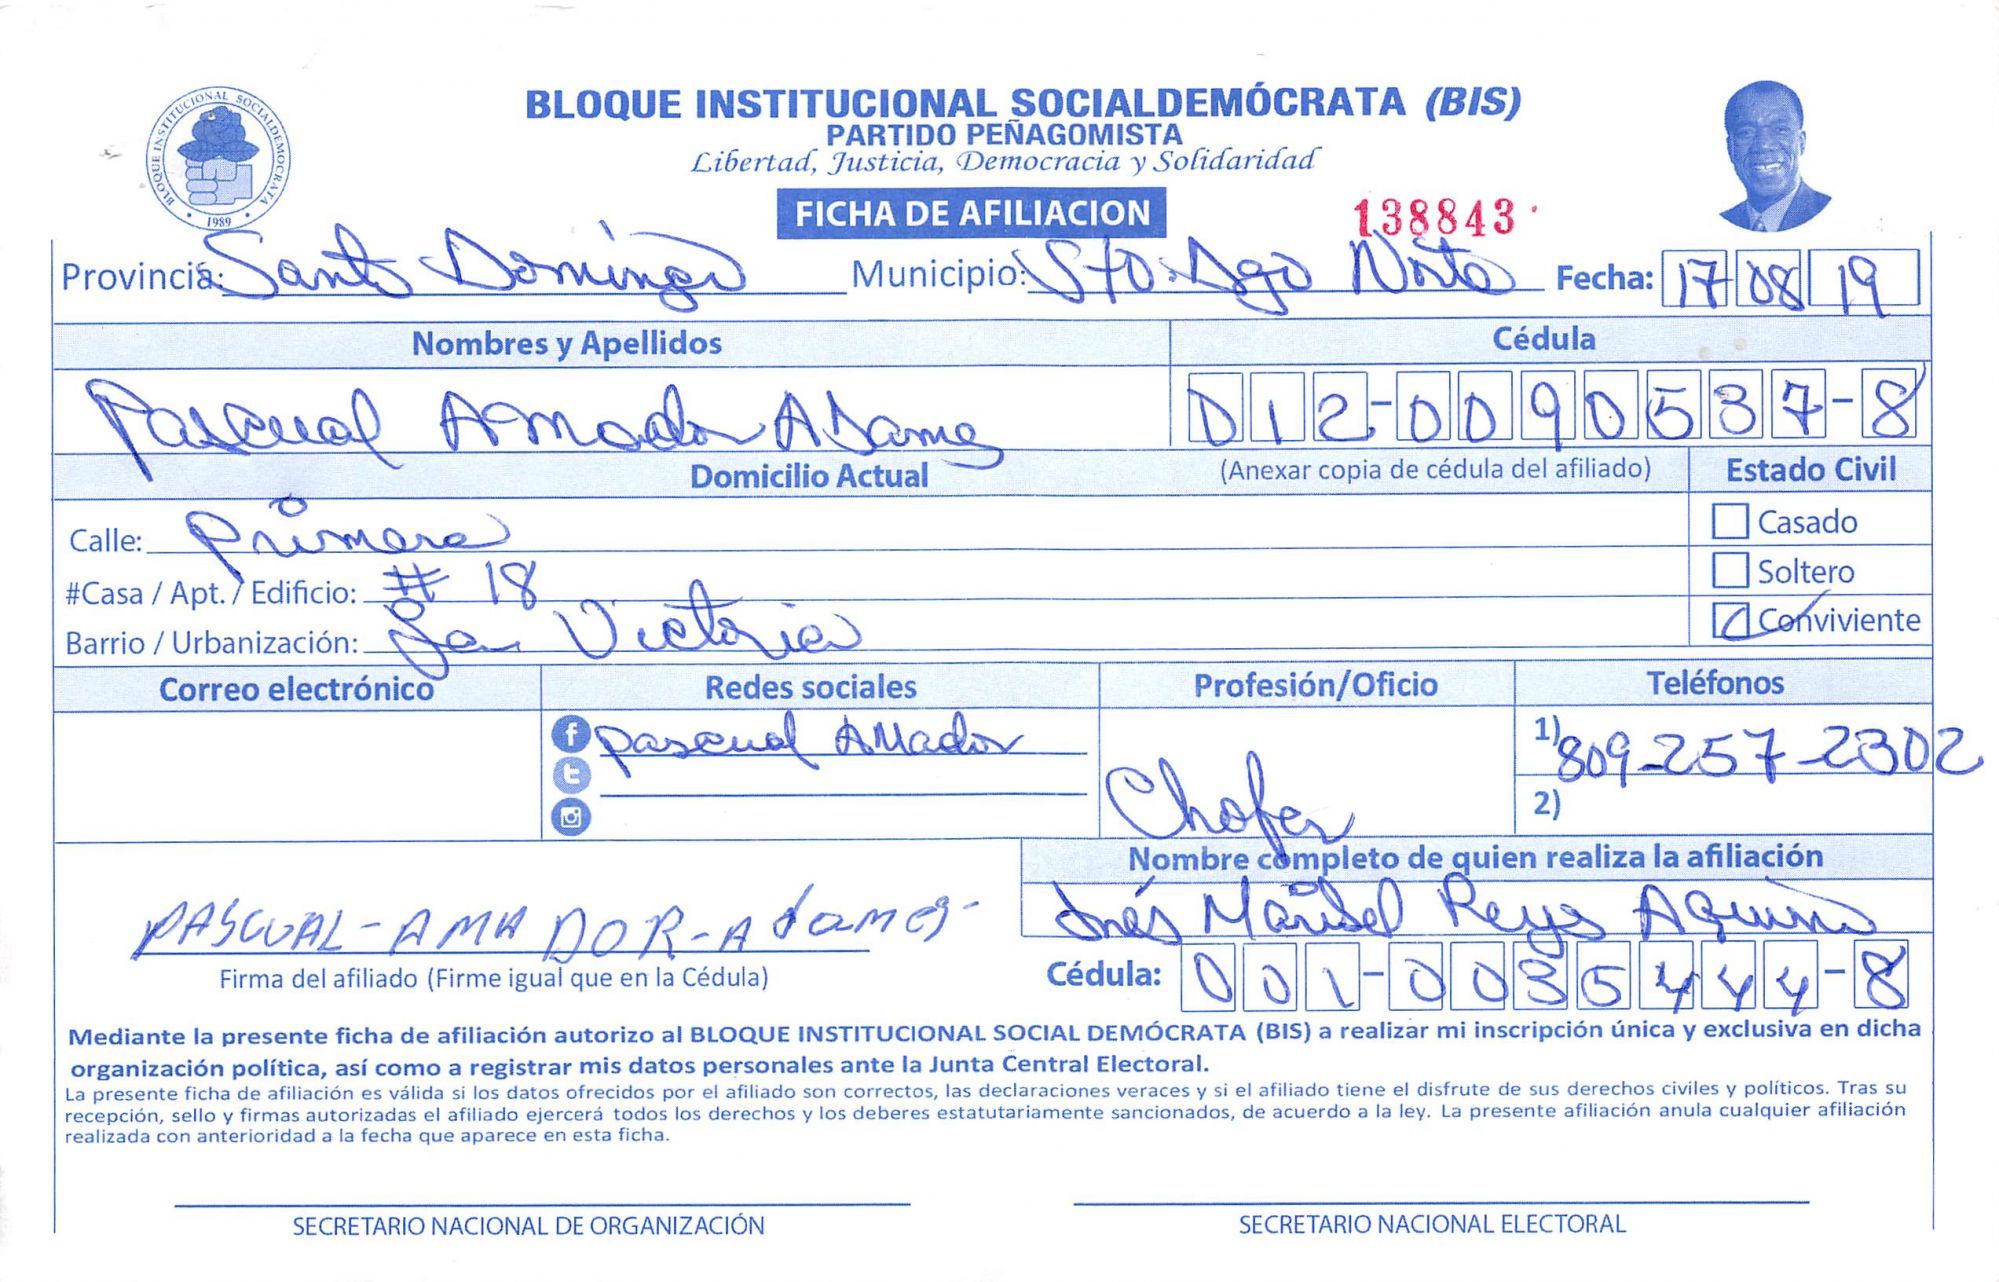 BLOQUE INSTITUCIONAL SOCIALDEMÓCRATA (BIS)
PARTIDO PEÑAGOMISTA
Libertad, Justicia, Democracia y Solidaridad
BLOQUE INSTITUCIONAL SOCIALDEMOCRATA
1989
FICHA DE AFILIACION
138843
Provincia: Santo Domingo Municipio: Sto. Dgo Norte Fecha: 17 08 19
Nombres y Apellidos Cédula
Pascual Amador Adames 012-0090537-8
Domicilio Actual (Anexar copia de cédula del afiliado) Estado Civil
Calle: Primera Casado
#Casa / Apt. / Edificio: # 18 Soltero
Barrio / Urbanización: La Victoria Conviviente
Correo electrónico Redes sociales Profesión/Oficio Teléfonos
Pascual Amador Chofer 1) 809-257-2302
2)
Nombre completo de quien realiza la afiliación
PASCUAL-AMADOR-Adames- Inés Maribel Reyes Aquino
Firma del afiliado (Firme igual que en la Cédula) Cédula: 001-0035444-8
Mediante la presente ficha de afiliación autorizo al BLOQUE INSTITUCIONAL SOCIAL DEMÓCRATA (BIS) a realizar mi inscripción única y exclusiva en dicha
organización política, así como a registrar mis datos personales ante la Junta Central Electoral.
La presente ficha de afiliación es válida si los datos ofrecidos por el afiliado son correctos, las declaraciones veraces y si el afiliado tiene el disfrute de sus derechos civiles y políticos. Tras su
recepción, sello y firmas autorizadas el afiliado ejercerá todos los derechos y los deberes estatutariamente sancionados, de acuerdo a la ley. La presente afiliación anula cualquier afiliación
realizada con anterioridad a la fecha que aparece en esta ficha.
SECRETARIO NACIONAL DE ORGANIZACIÓN SECRETARIO NACIONAL ELECTORAL